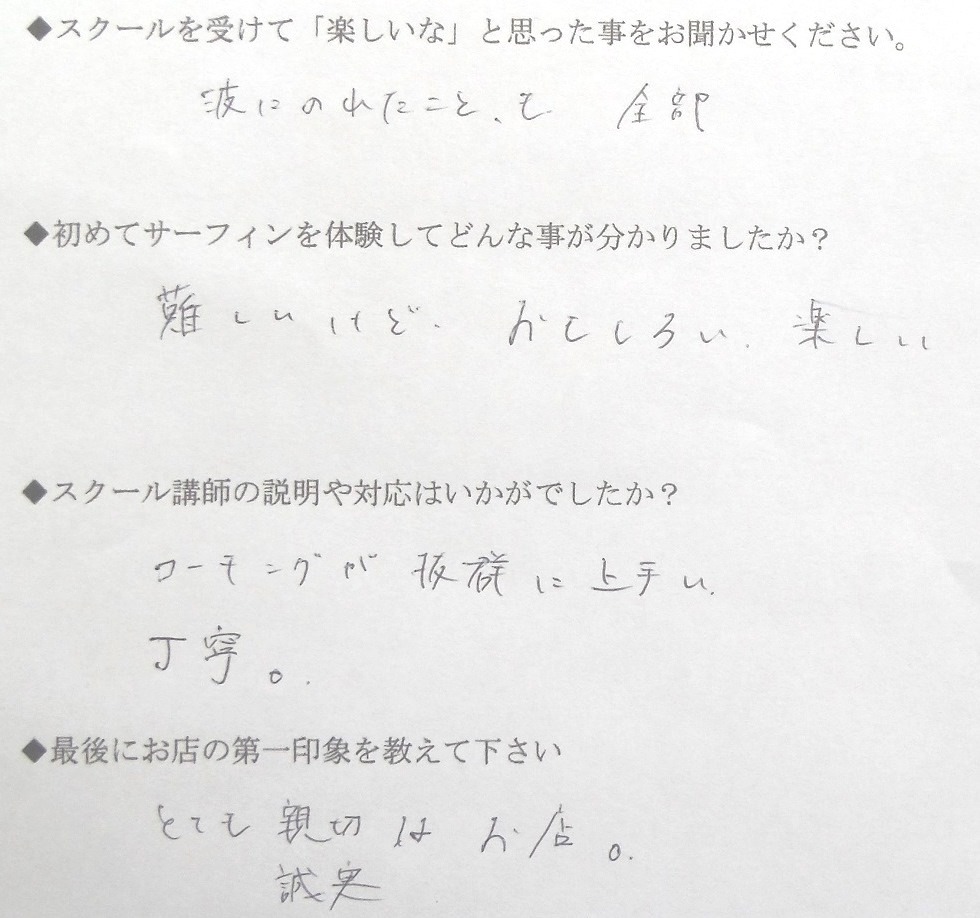 ◆スクールを受けて「楽しいな」と思った事をお聞かせください。
波にのれたこと、も 全部
◆初めてサーフィンを体験してどんな事が分かりましたか？
難しいけど、 おもしろい、楽しい
◆スクール講師の説明や対応はいかがでしたか？
コーチングが 抜群に上手い、
丁寧。
◆最後にお店の第一印象を教えて下さい
とても 親切な お店。
誠実